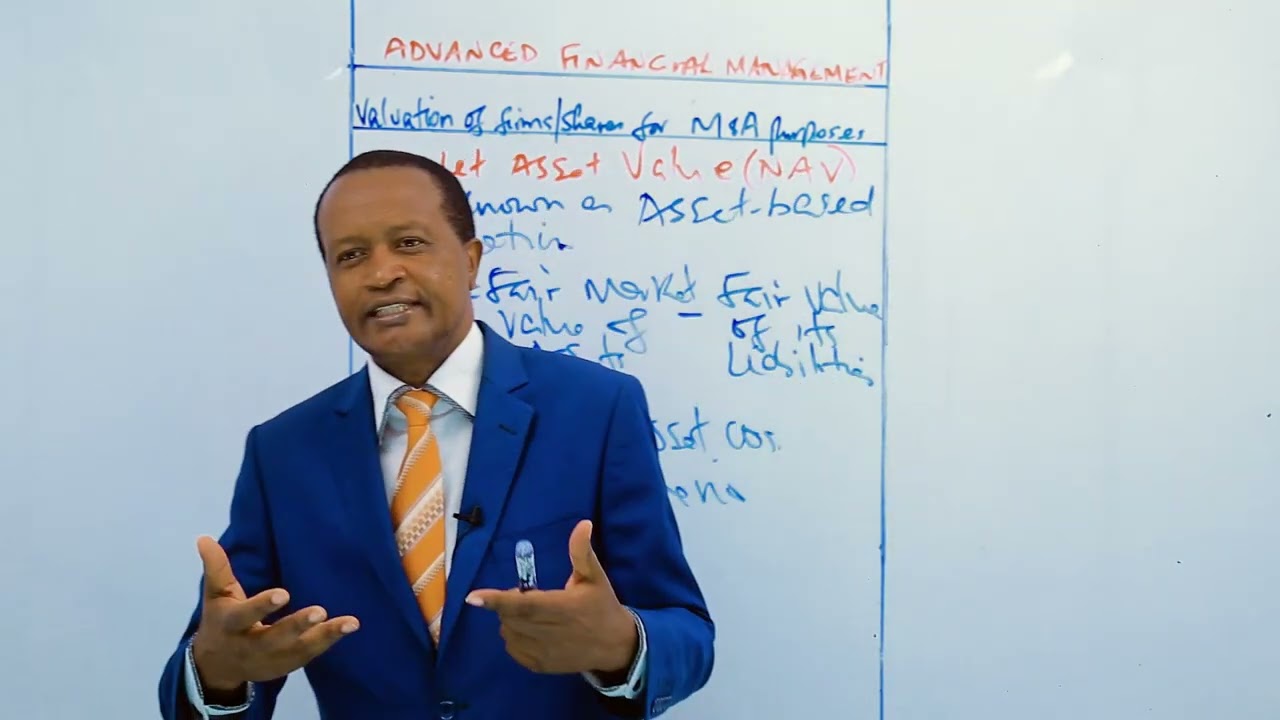 ADVANCED FINANCIAL MANAGEMENT
Valuation of firms/shares for M&A purposes
Asset Value (NAV)
as Asset-based
Fair Market - Fair Value
Value of of its
Liabilities
cos.